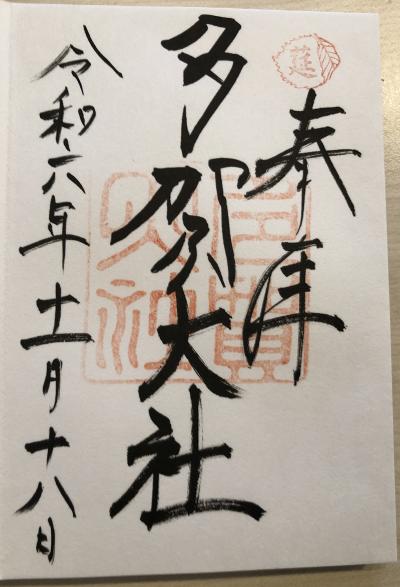 奉拝
多賀大社
令和六年十一月十八日
莚